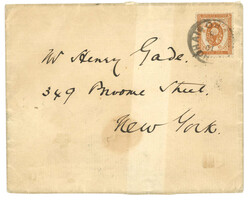 Mr Henry Gade.
349 Broome Street.
New York.